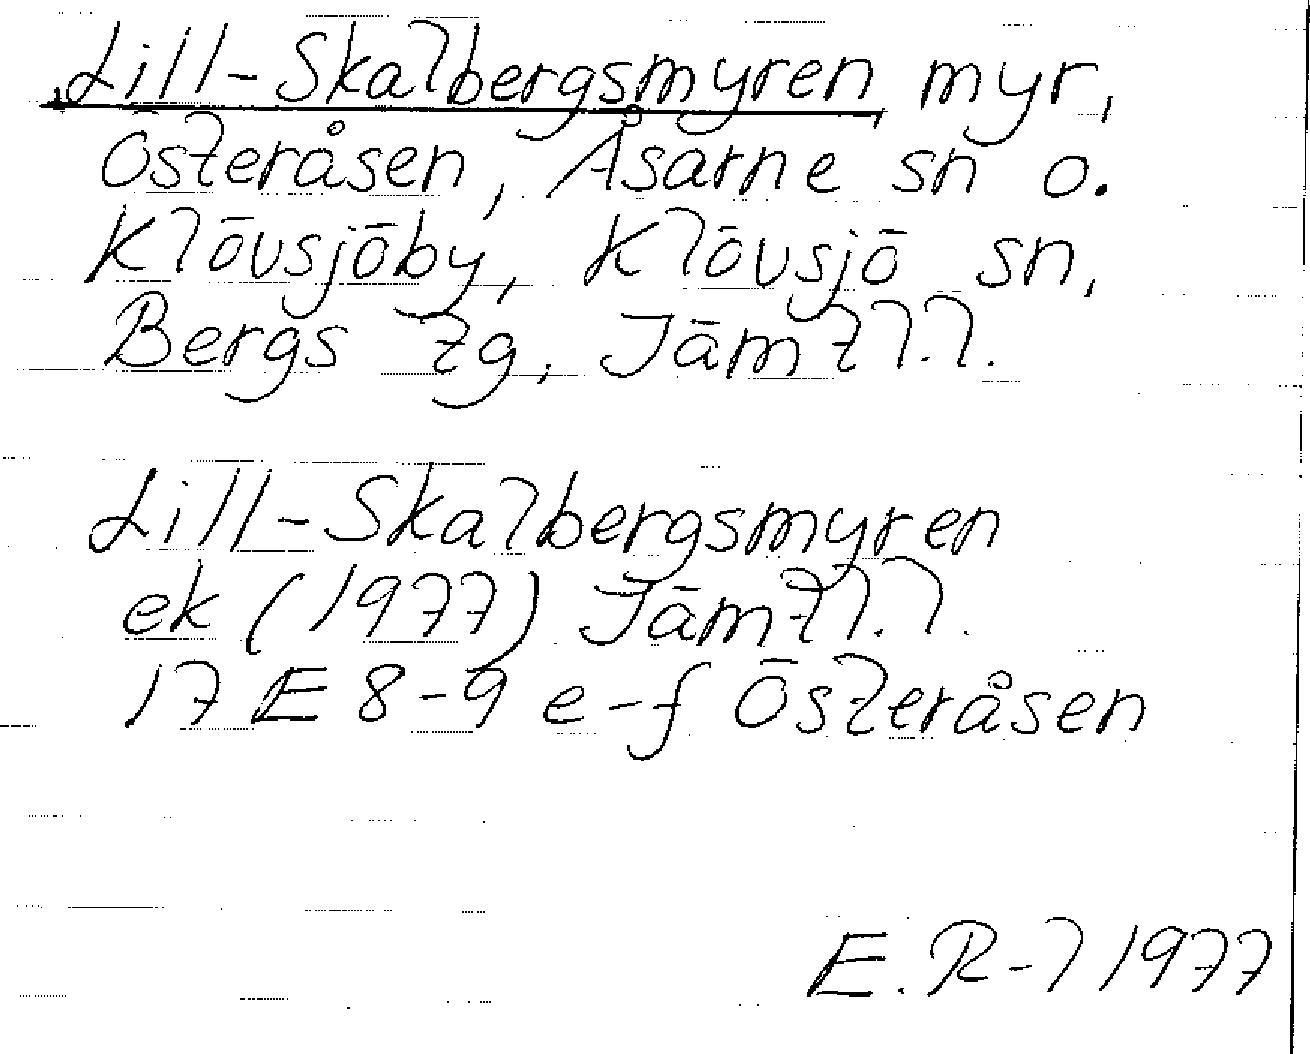 Lill-Skalbergsmyren myr,
Österåsen, Åsarne sn o.
Klövsjöby, Klövsjö sn,
Bergs tg, Jämtl.l.
Lill-Skalbergsmyren
ek (1977) Jämtl.l.
17 E 8-9 e-f Österåsen
E. R-l 1977